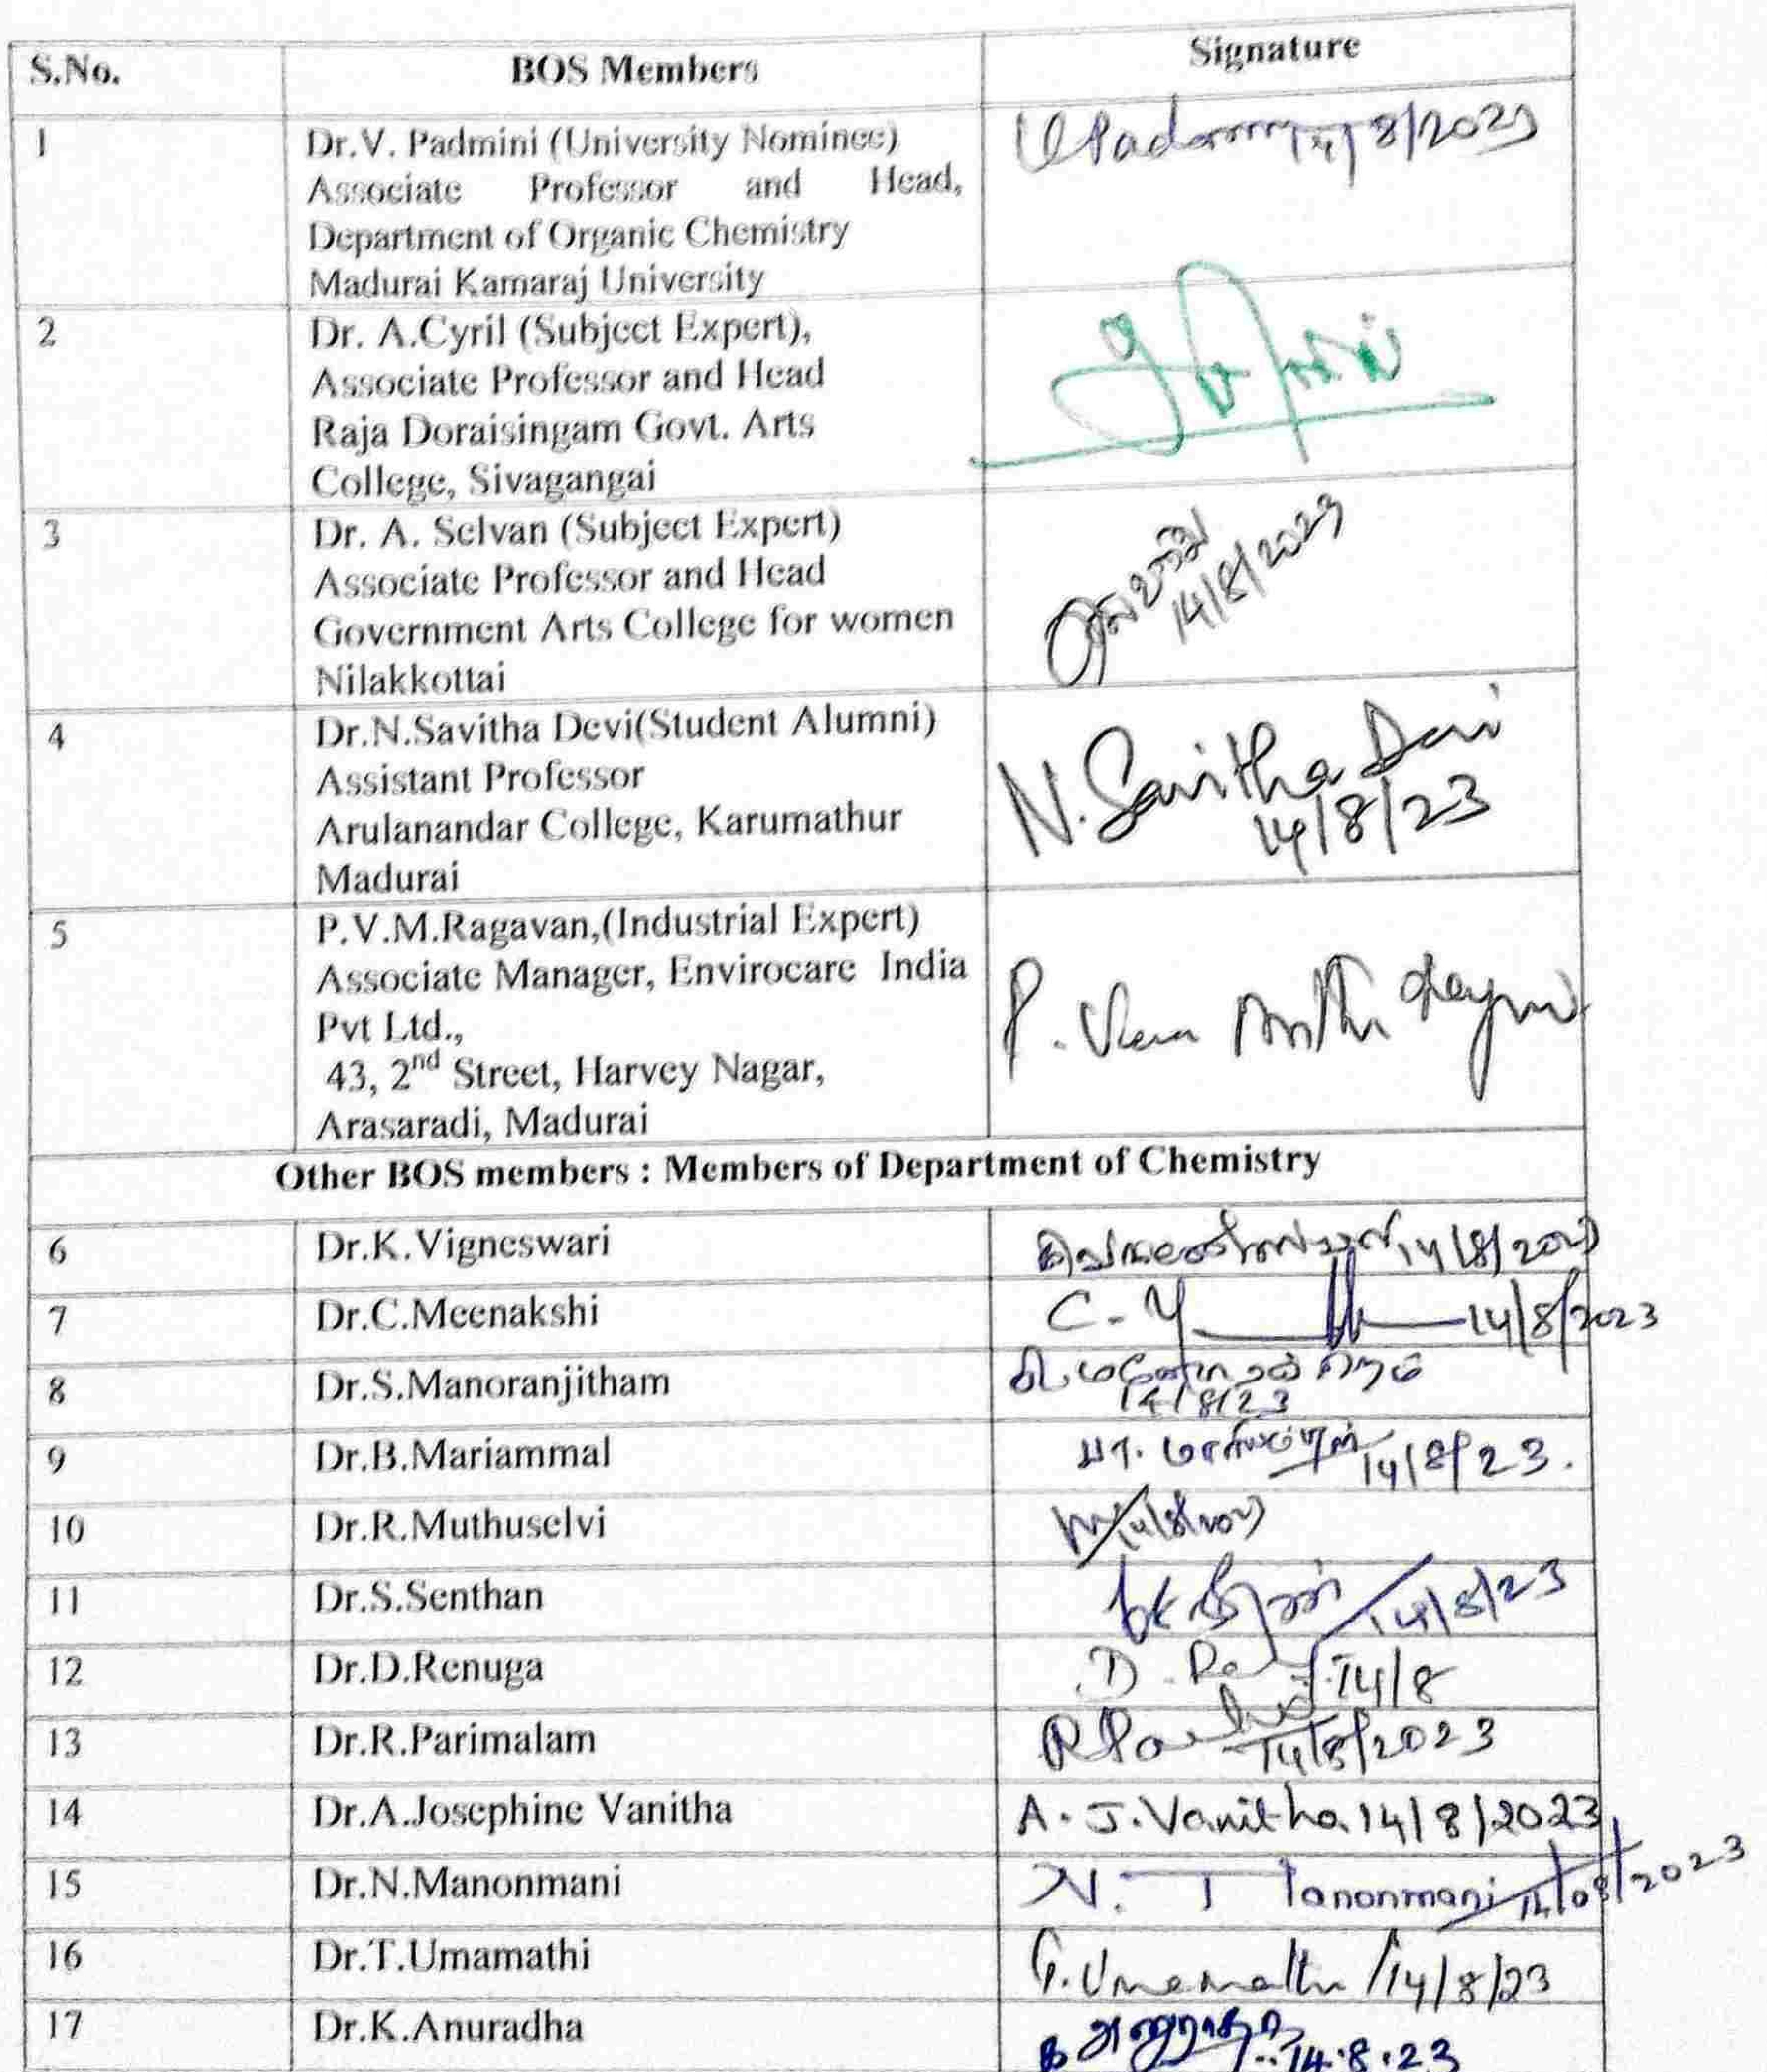 S.No. BOS Members Signature
1 Dr.V. Padmini (University Nominee) 14/8/2023
Associate Professor and Head,
Department of Organic Chemistry
Madurai Kamaraj University
2 Dr. A.Cyril (Subject Expert),
Associate Professor and Head
Raja Doraisingam Govt. Arts
College, Sivagangai
3 Dr. A. Selvan (Subject Expert)
Associate Professor and Head 14/8/2023
Government Arts College for women
Nilakkottai
4 Dr.N.Savitha Devi(Student Alumni) N. Savitha Devi
Assistant Professor 14/8/23
Arulanandar College, Karumathur
Madurai
5 P.V.M.Ragavan,(Industrial Expert)
Associate Manager, Envirocare India
Pvt Ltd.,
43, 2nd Street, Harvey Nagar,
Arasaradi, Madurai
Other BOS members : Members of Department of Chemistry
6 Dr.K.Vigneswari 14/8/2023
7 Dr.C.Meenakshi C. 14/8/2023
8 Dr.S.Manoranjitham
14/8/23
9 Dr.B.Mariammal பா. மாரியம்மாள் 14/8/23.
10 Dr.R.Muthuselvi 14/8/2023
11 Dr.S.Senthan 14/8/23
12 Dr.D.Renuga D. 14/8
13 Dr.R.Parimalam 14/8/2023
14 Dr.A.Josephine Vanitha A. J. Vanitha 14/8/2023
15 Dr.N.Manonmani N. Manonmani 14/08/2023
16 Dr.T.Umamathi T. Umamathi 14/8/23
17 Dr.K.Anuradha க அனுராதா 14.8.23